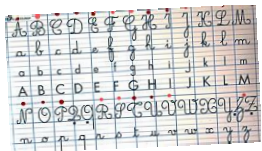 A B C D E F G H I J K L M
a b c d e f g h i j k l m
a b c d e f g h i j k l m
A B C D E F G H I J K L M
N O P Q R S T U V W X Y Z
n o p q r s t u v w x y z